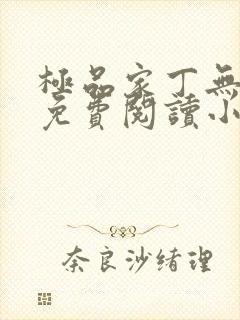 極品家丁無
免費閱讀小
奈良沙緒理